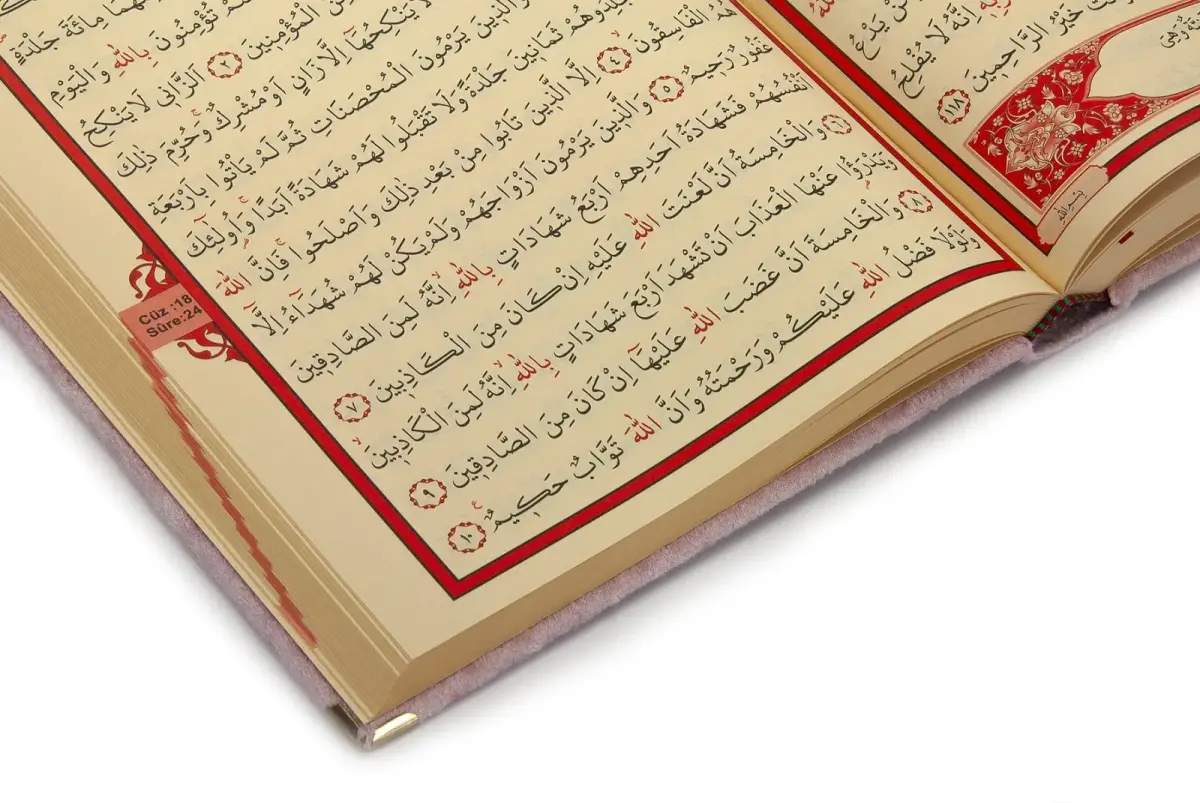 يَدْعُ
اِنَّهُ لَا يُفْلِحُ
خَيْرُ الرَّاحِمِينَ ﴿١١٨﴾
بِسْمِ اللهِ
مِائَةَ جَلْدَةٍ
تُؤْمِنُونَ بِاللّٰهِ وَالْيَوْمِ
الْمُؤْمِنِينَ ﴿٢﴾ اَلزَّانِي لَا يَنْكِحُ
لَا يَنْكِحُهَا اِلَّا زَانٍ اَوْ مُشْرِكٌ وَحُرِّمَ ذٰلِكَ
وَالَّذِينَ يَرْمُونَ الْمُحْصَنَاتِ ثُمَّ لَمْ يَأْتُوا بِاَرْبَعَةِ
ثَمَانِينَ جَلْدَةً وَلَا تَقْبَلُوا لَهُمْ شَهَادَةً اَبَدًا وَاُولٰٓئِكَ
هُمُ الْفَاسِقُونَ ﴿٤﴾ اِلَّا الَّذِينَ تَابُوا مِنْ بَعْدِ ذٰلِكَ وَاَصْلَحُوا فَاِنَّ اللّٰهَ
غَفُورٌ رَحِيمٌ ﴿٥﴾ وَالَّذِينَ يَرْمُونَ اَزْوَاجَهُمْ وَلَمْ يَكُنْ لَهُمْ شُهَدَٓاءُ اِلَّٓا
اَنْفُسُهُمْ فَشَهَادَةُ اَحَدِهِمْ اَرْبَعُ شَهَادَاتٍ بِاللّٰهِ اِنَّهُ لَمِنَ الصَّادِقِينَ
﴿٦﴾ وَالْخَامِسَةُ اَنَّ لَعْنَتَ اللّٰهِ عَلَيْهِ اِنْ كَانَ مِنَ الْكَاذِبِينَ ﴿٧﴾
وَيَدْرَؤُا عَنْهَا الْعَذَابَ اَنْ تَشْهَدَ اَرْبَعَ شَهَادَاتٍ بِاللّٰهِ اِنَّهُ لَمِنَ الْكَاذِبِينَ
﴿٨﴾ وَالْخَامِسَةَ اَنَّ غَضَبَ اللّٰهِ عَلَيْهَٓا اِنْ كَانَ مِنَ الصَّادِقِينَ ﴿٩﴾
وَلَوْلَا فَضْلُ اللّٰهِ عَلَيْكُمْ وَرَحْمَتُهُ وَاَنَّ اللّٰهَ تَوَّابٌ حَكِيمٌ ﴿١٠﴾
Cüz :18
Sûre:24